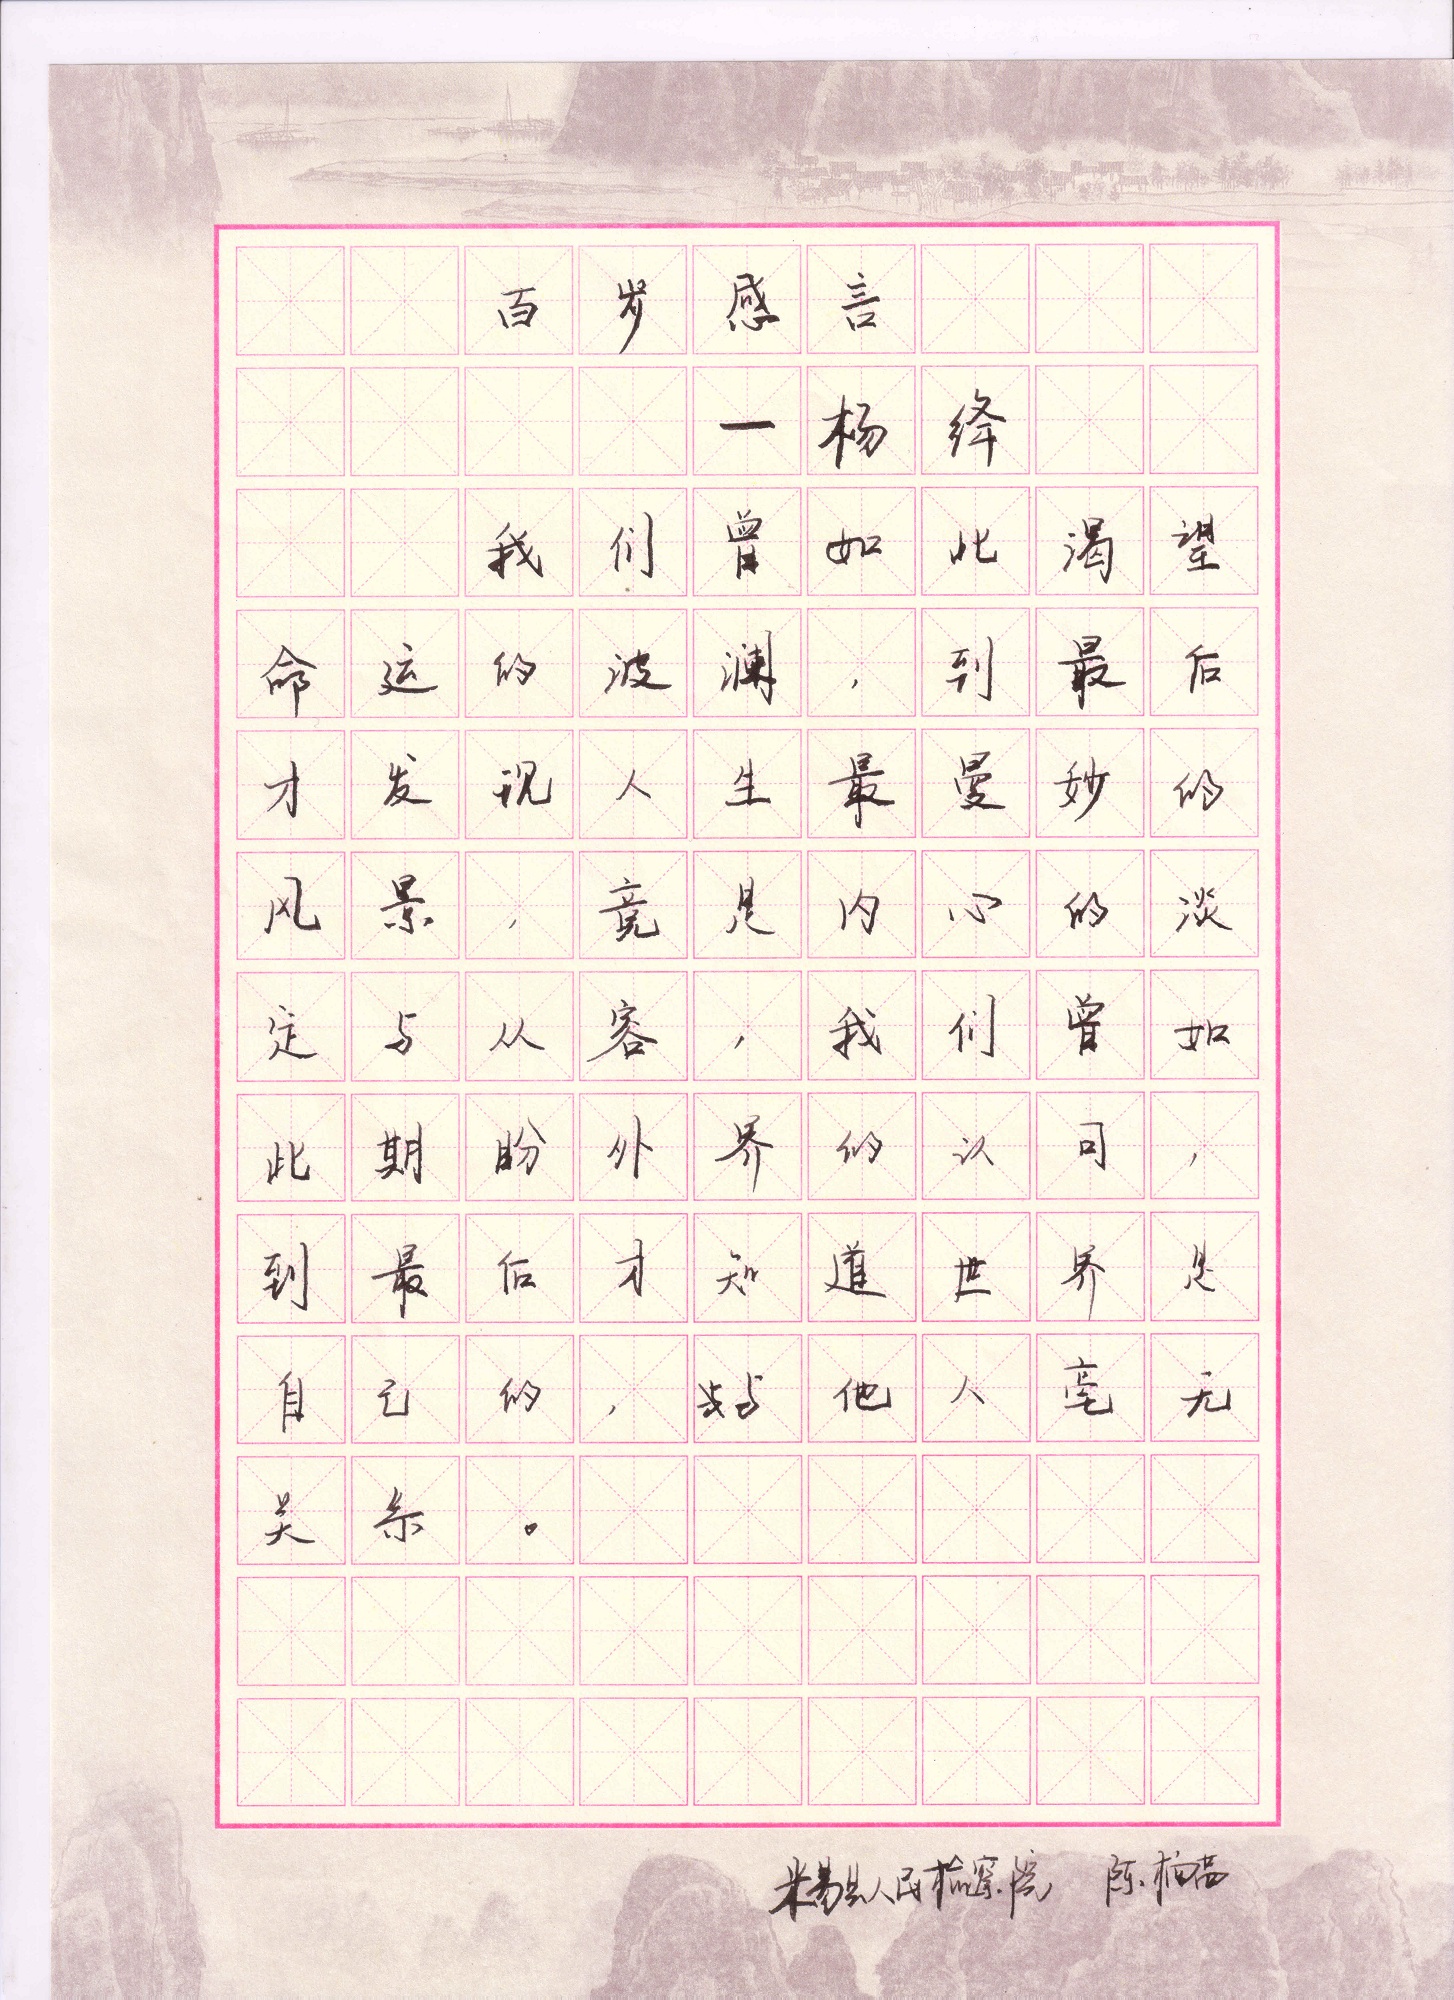 百岁感言
一杨绛
我们曾如此渴望
命运的波澜，到最后
才发现人生最曼妙的
风景，竟是内心的淡
定与从容，我们曾如
此期盼外界的认可，
到最后才知道世界是
自己的，与他人毫无
关系。
米易县人民检察院 陈柏